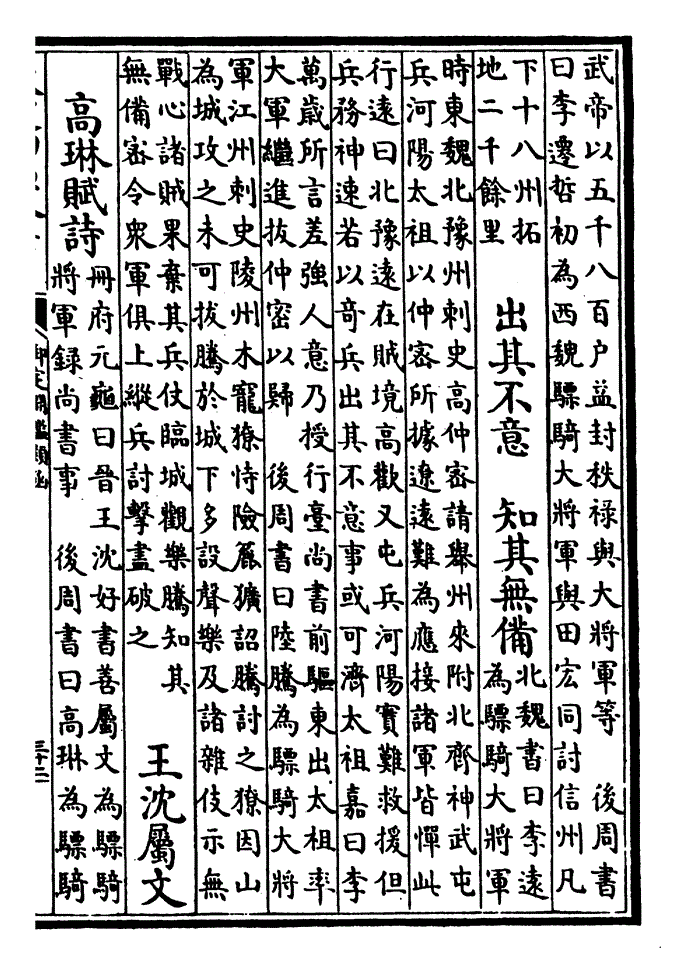 武帝以五千八百户益封秩禄與大將軍等　後周書
曰李遷哲初為西魏驃騎大將軍與田宏同討信州凡
下十八州拓
地二千餘里
出其不意　知其無備
北魏書曰李遠
為驃騎大將軍
時東魏北豫州刺史高仲密請舉州來附北齊神武屯
兵河陽太祖以仲密所據遼遠難為應接諸軍皆憚此
行遠曰北豫遠在賊境高歡又屯兵河陽實難救援但
兵務神速若以奇兵出其不意事或可濟太祖嘉曰李
萬歲所言差強人意乃授行臺尚書前驅東出太祖率
大軍繼進拔仲密以歸　後周書曰陸騰為驃騎大將
軍江州刺史陵州木寵獠恃險麤獷詔騰討之獠因山
為城攻之未可拔騰於城下多設聲樂及諸雜伎示無
戰心諸賊果棄其兵仗臨城觀樂騰知其
無備密令衆軍俱上縱兵討擊盡破之
王沈屬文
高琳賦詩
冊府元龜曰晉王沈好書善屬文為驃騎
將軍錄尚書事　後周書曰高琳為驃騎
御定淵鑑類函
三十二